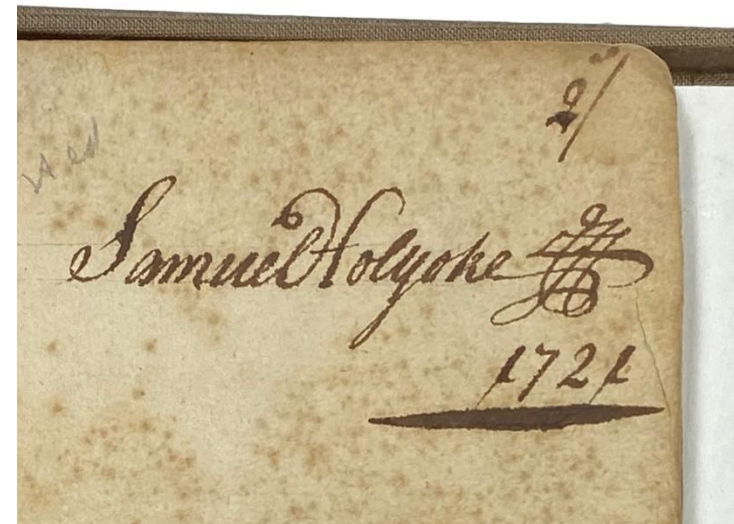 2/
Samuel Holyoke
1721